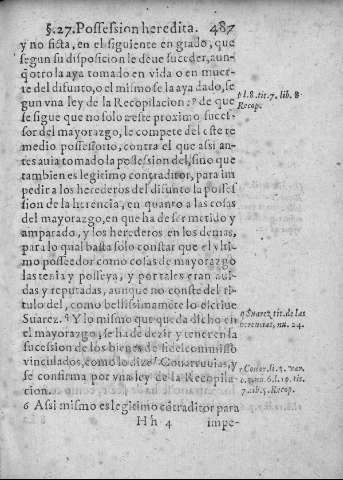 §.27. Possession heredita. 487
y no ficta, en el siguiente en grado, que
segun su disposicion le deue suceder, aun-
q̃ otro la aya tomado en vida o en muer-
te del difunto, o el mismo se la aya dado, se
gun vna ley de la Recopilacion: ᵖ de que
se sigue que no solo este proximo suces-
sor del mayorazgo, le compete del este re
medio possessorio, contra el que assi an-
tes auia tomado la possession del, sino que
tambien es legitimo contraditor, para im
pedir a los herederos del difunto la posses
sion de la herencia, en quanto a las cosas
del mayorazgo, en que ha de ser metido y
amparado, y los herederos en los demas,
para lo qual basta solo constar que el vlti-
mo posseedor como cosas de mayorazgo
las tenia y posseya, y por tales eran aui-
das y reputadas, aunque no conste del ti-
tulo del, como bellissimamẽte lo escriue
Suarez. ᑫ Y lo mismo que queda dicho en
el mayorazgo, se ha de dezir y tener en la
sucession de los bienes de fideicommisso
vinculados, como lo dize ʳ Couarruuias, y
se confirma por vna ley de la Recopila-
cion.
6 Assi mismo es legitimo cõtraditor para
H h 4 impe-
p l. 8. tit. 7. lib. 5
Recop.
q Suarez, tit. de las
herencias, nu. 24.
r Couar. li. 3. var.
tit.
7. lib. 5. Recop.